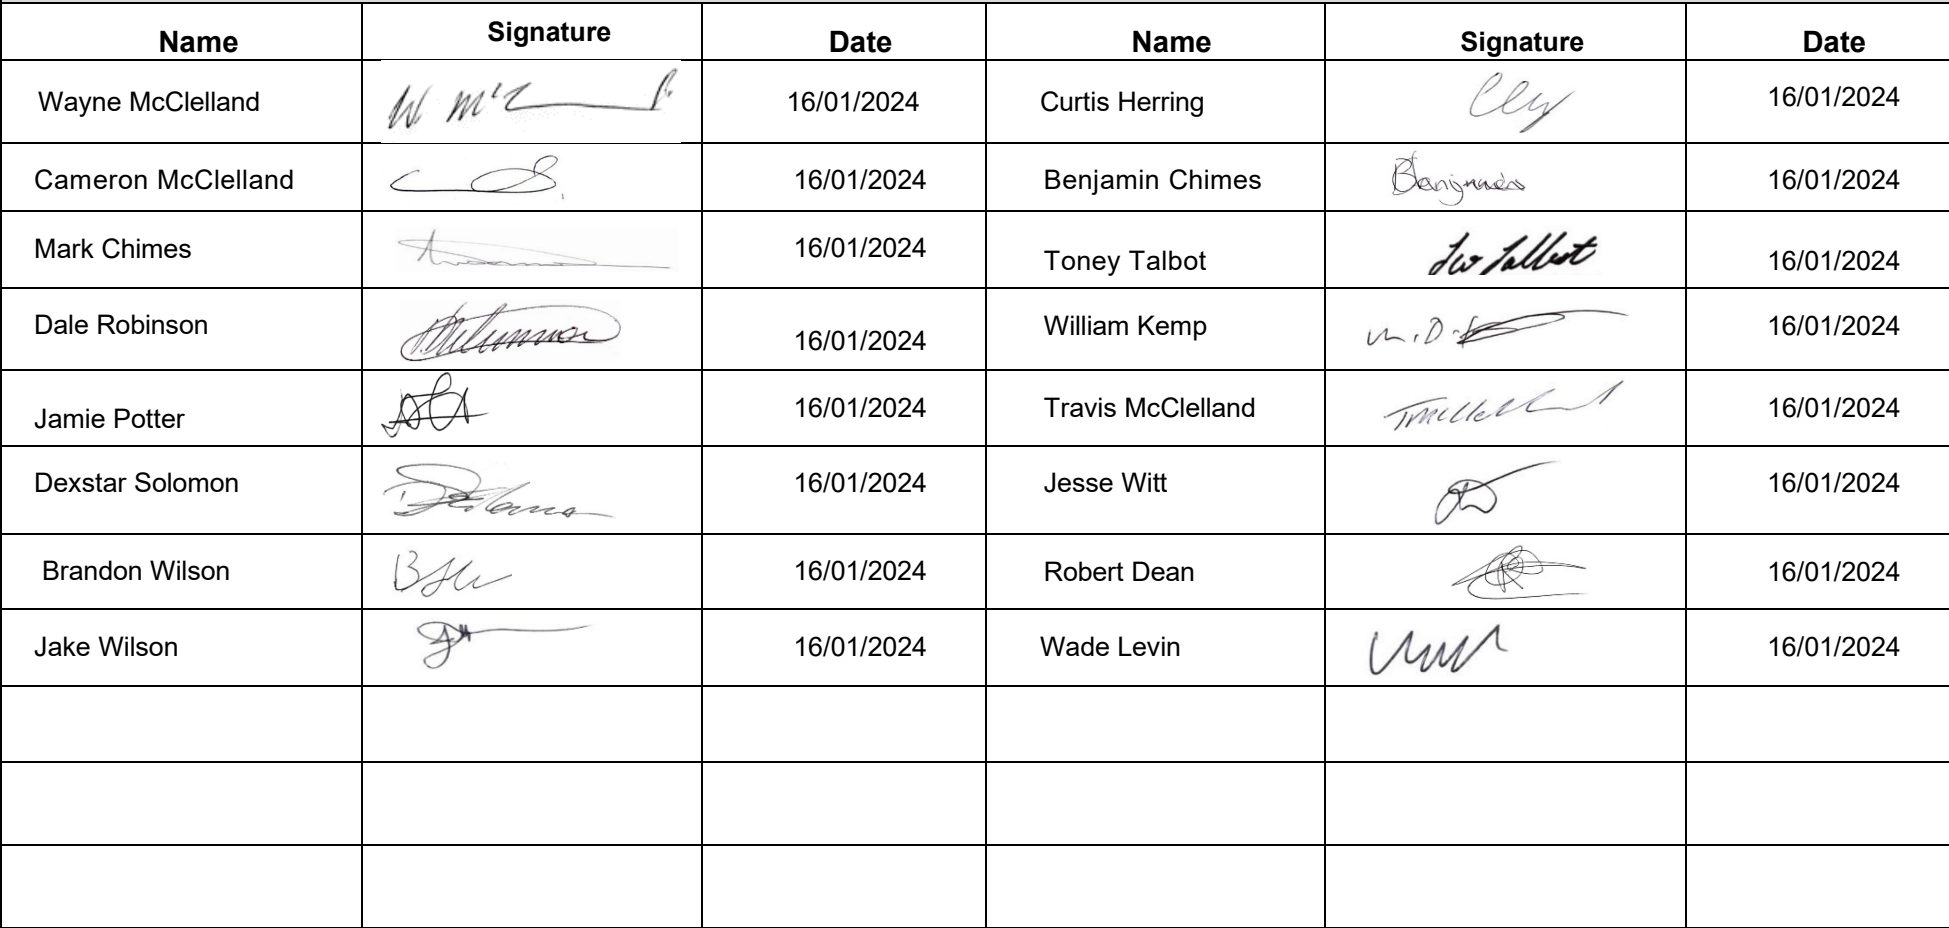 Name Signature Date Name Signature Date
Wayne McClelland 16/01/2024 Curtis Herring 16/01/2024
Cameron McClelland 16/01/2024 Benjamin Chimes 16/01/2024
Mark Chimes 16/01/2024 Toney Talbot 16/01/2024
Dale Robinson 16/01/2024 William Kemp 16/01/2024
Jamie Potter 16/01/2024 Travis McClelland 16/01/2024
Dexstar Solomon 16/01/2024 Jesse Witt 16/01/2024
Brandon Wilson 16/01/2024 Robert Dean 16/01/2024
Jake Wilson 16/01/2024 Wade Levin 16/01/2024